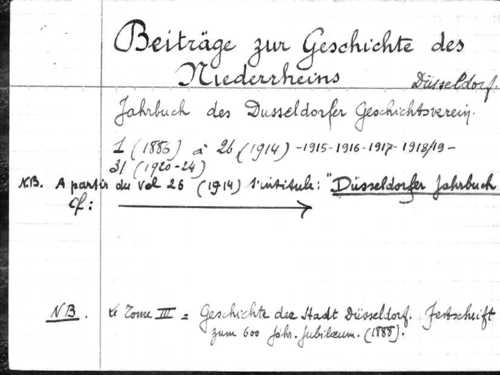 Beiträge zur Geschichte des
Niederrheins Düsseldorf.
Jahrbuch des Dusseldorfer Geschichtsverein.
1 (1886) à 26 (1914) -1915-1916-1917-1918/19-
31 (1920-24)
NB. A partir du Vol 26 (1914) s'intitule: "Düsseldorfer Jahrbuch
cf:
NB. le Tome III = Geschichte der Stadt Düsseldorf. Festschrift
zum 600 jähr. Jubilæum. (1888).